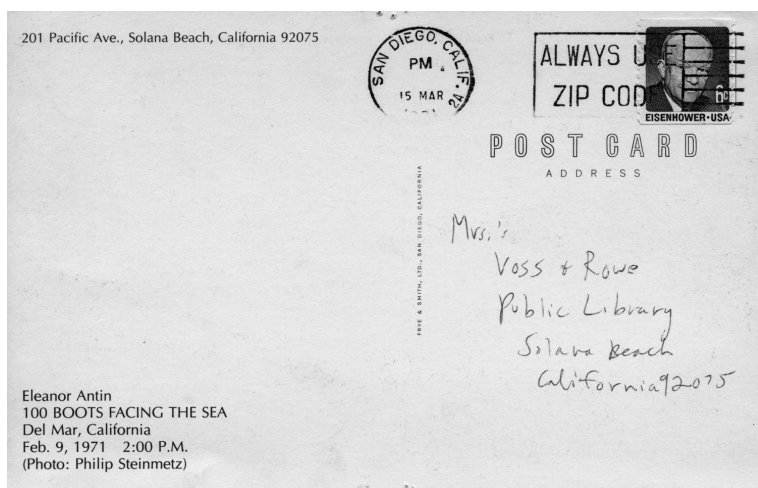 201 Pacific Ave., Solana Beach, California 92075
SAN DIEGO, CALIF. 92
PM
15 MAR
ALWAYS USE
ZIP CODE
6c
EISENHOWER·USA
POST CARD
ADDRESS
FRYE & SMITH, LTD., SAN DIEGO, CALIFORNIA
Mrs.'s
Voss & Rowe
Public Library
Solana Beach
California 92075
Eleanor Antin
100 BOOTS FACING THE SEA
Del Mar, California
Feb. 9, 1971 2:00 P.M.
(Photo: Philip Steinmetz)